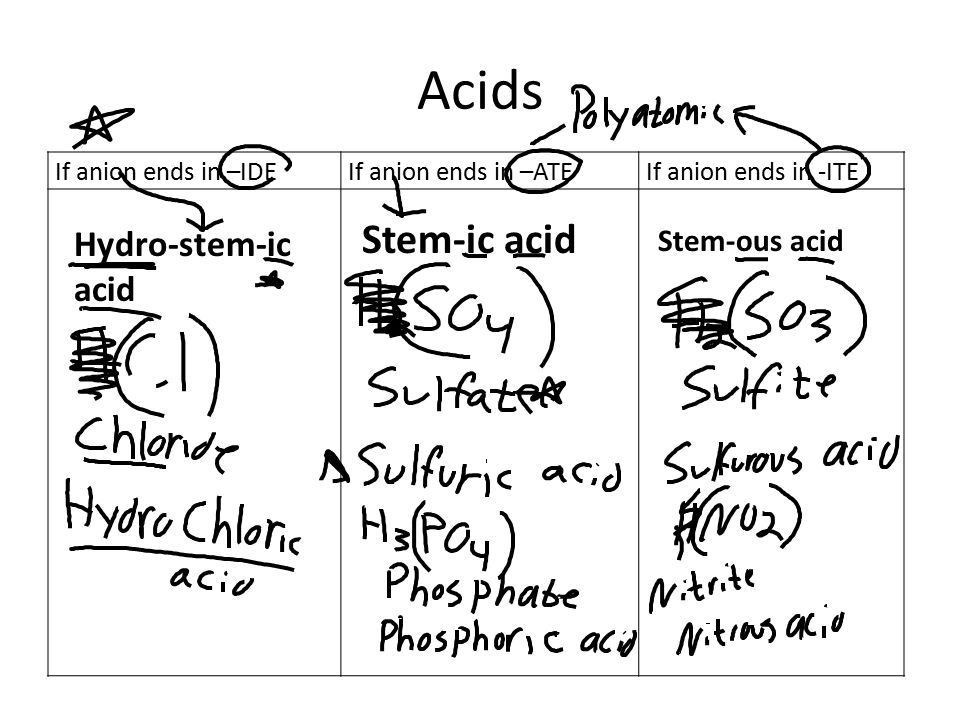 Acids
Polyatomic
If anion ends in –IDE
Hydro-stem-ic
acid
(Cl)
Chloride
HydroChloric
acid
If anion ends in –ATE
Stem-ic acid
(SO4)
Sulfate
Sulfuric acid
H3(PO4)
Phosphate
Phosphoric acid
If anion ends in -ITE
Stem-ous acid
H2(SO3)
Sulfite
Sulfurous acid
(NO2)
Nitrite
Nitrous acid